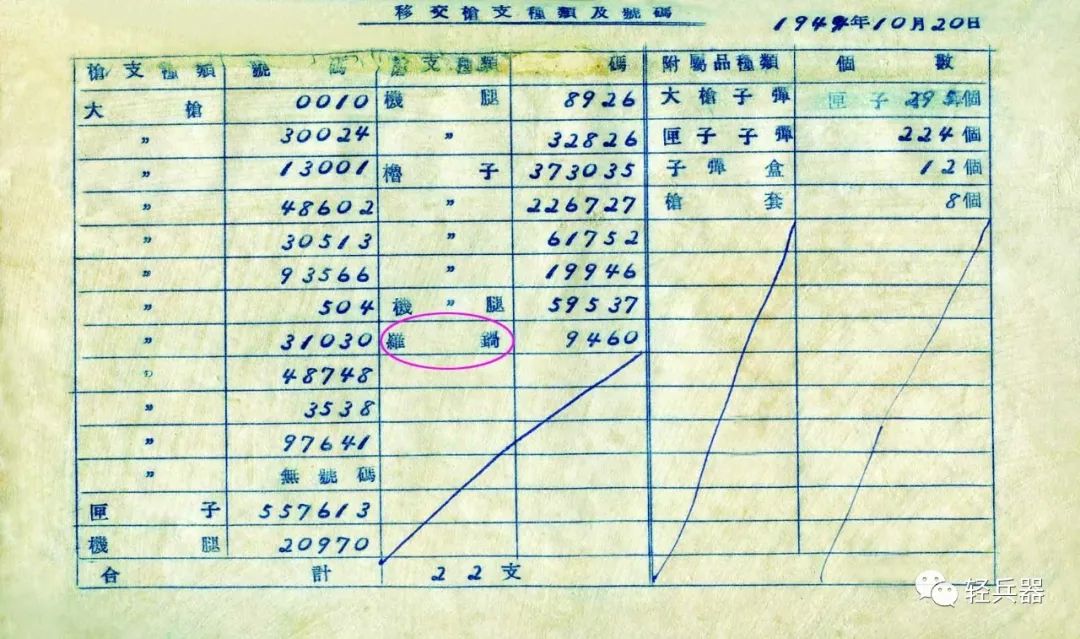 移交槍支種類及號碼
1949年10月20日
槍支種類 號碼 支種類 碼 附屬品種類 個數
大槍 0010 機腿 8926 大槍子彈 匣子 295個
〃 30024 〃 32826 匣子子彈 224個
〃 13001 櫓子 373035 子彈盒 12個
〃 48602 〃 226727 槍套 8個
〃 30513 〃 61752
〃 93566 〃 19946
〃 504 機〃腿 59537
〃 31030 羅鍋 9460
〃 48748
〃 3538
〃 97641
〃 無號碼
匣子 557613
機腿 20970
合計 22支
轻兵器